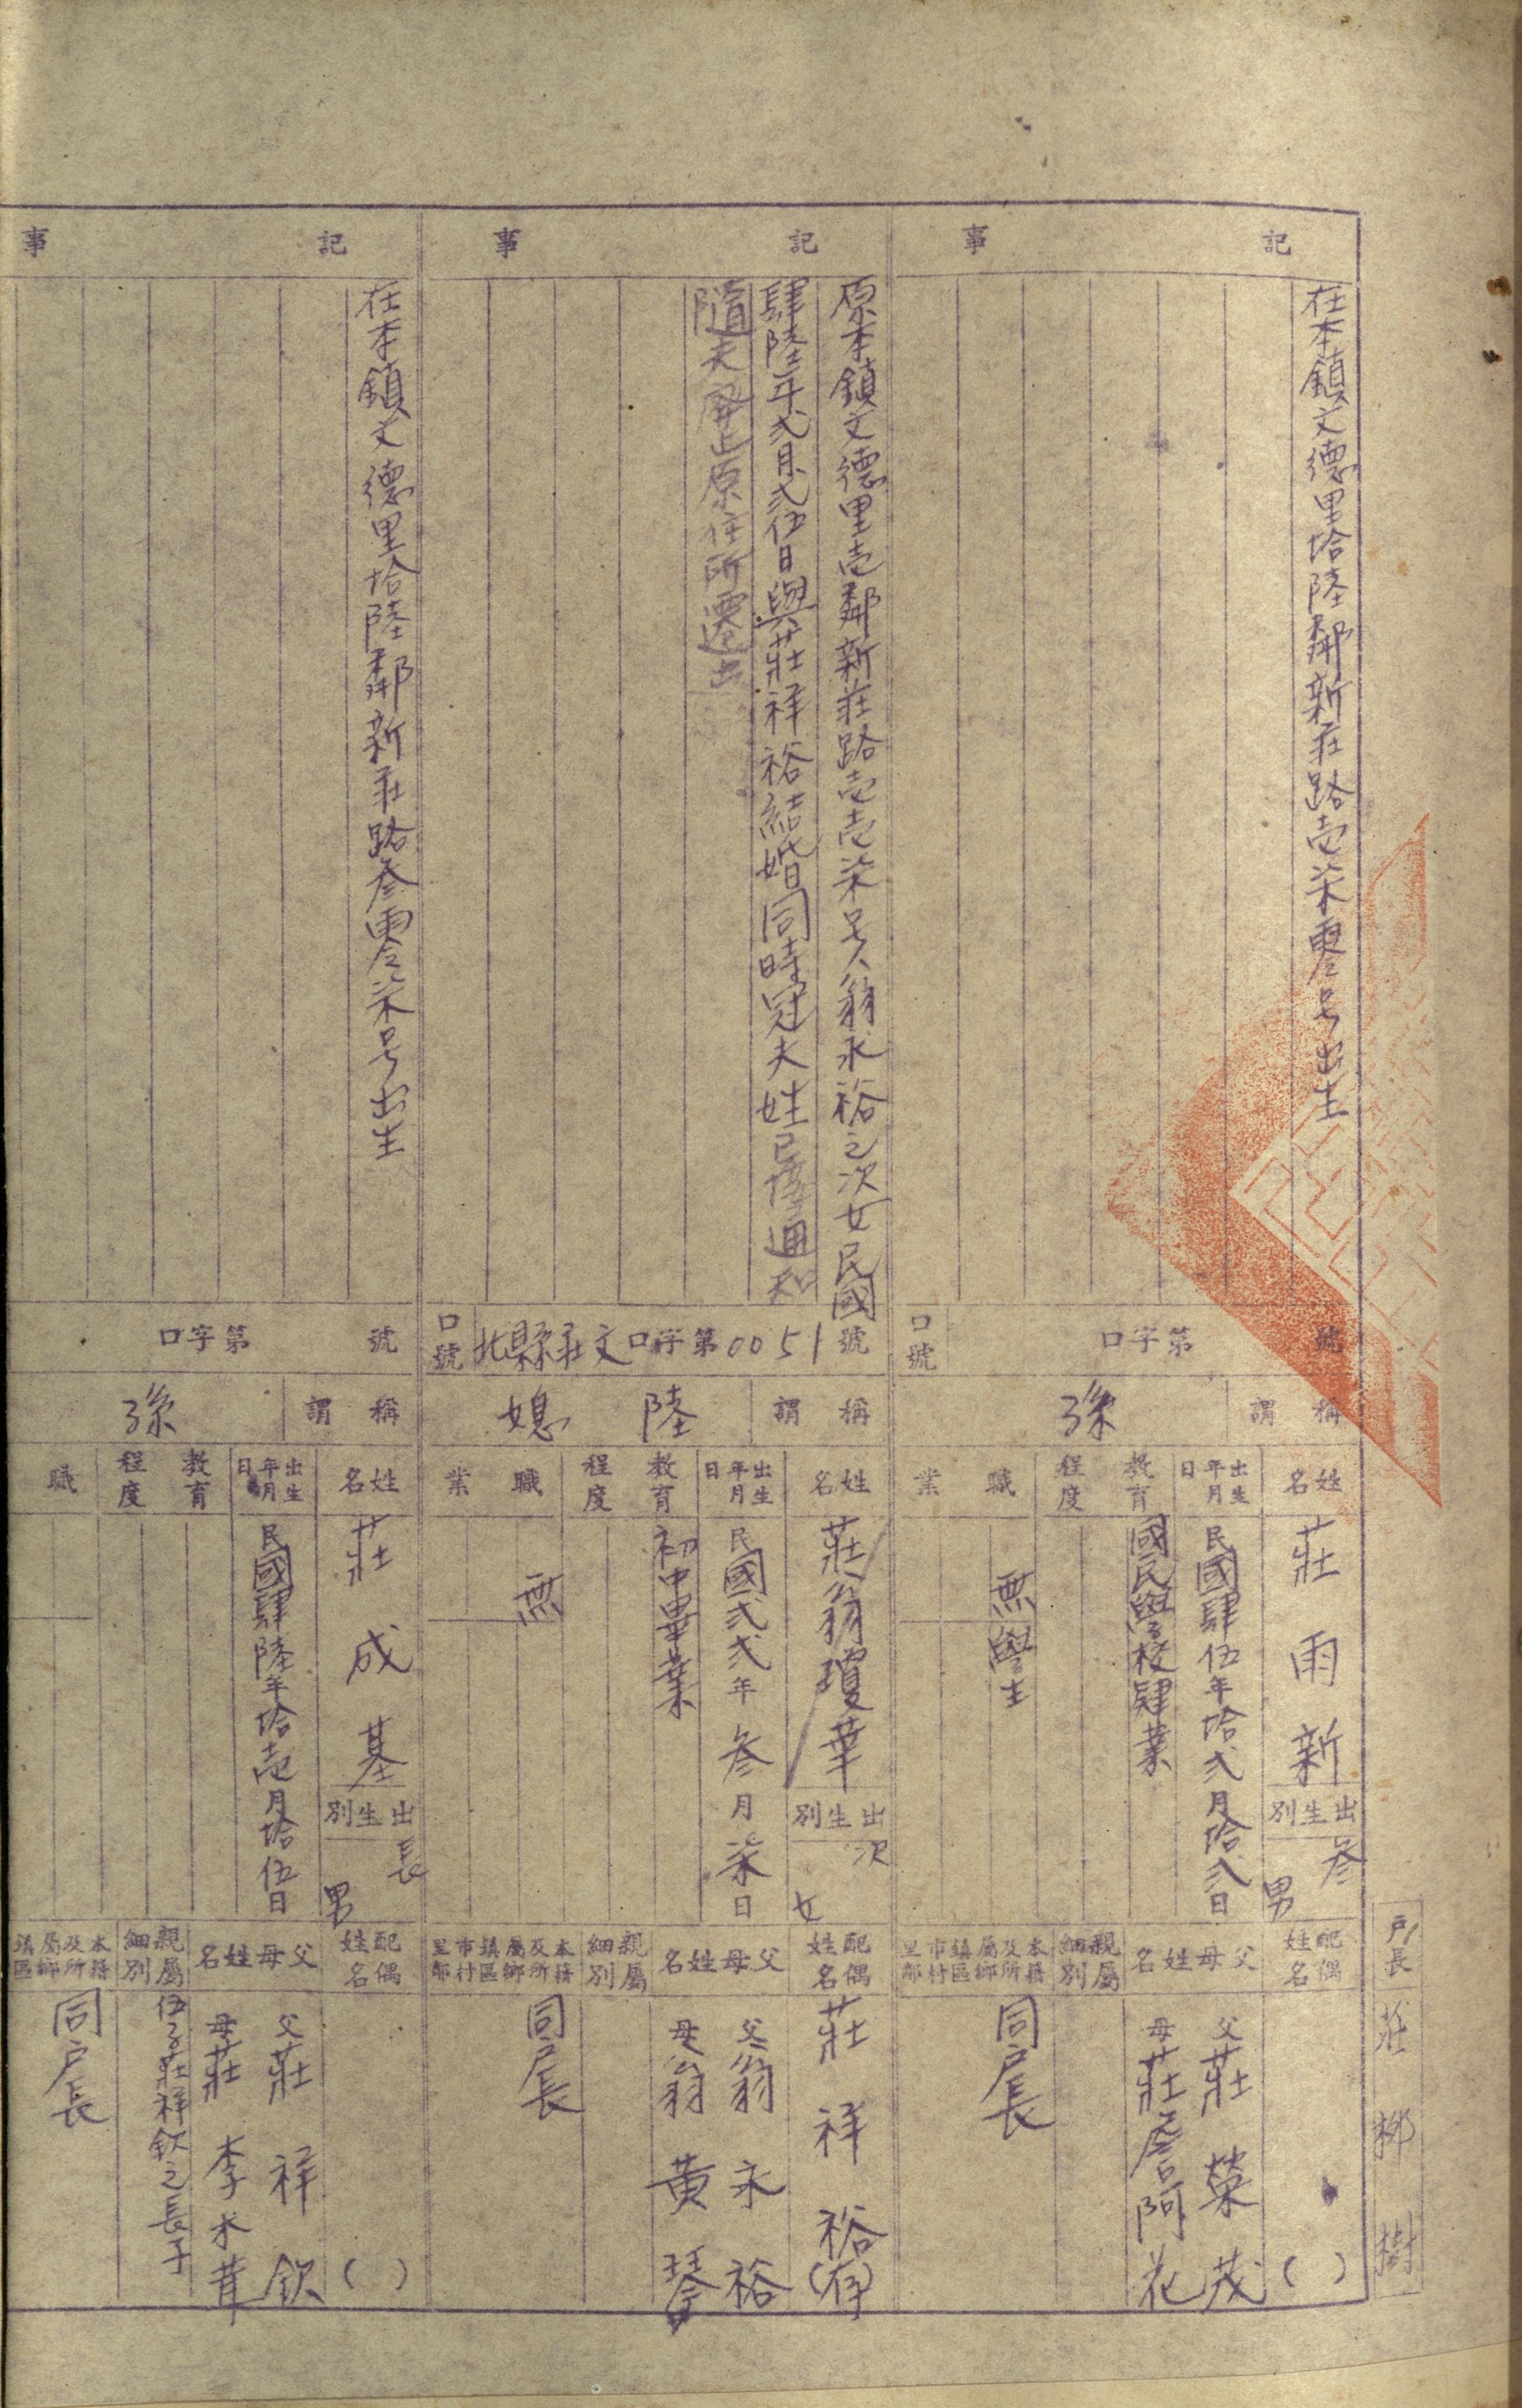 戶長 莊 柳 樹
記事
在本鎮文德里拾陸鄰新莊路壱柒零号出生
口號 字第 口 號
稱謂 孫
姓名 莊雨新
出生別 叁男
出生年月日 民國肆伍年拾弍月拾弍日
教育程度 國民學校肄業
職業 無 學生
配偶姓名 ( )
父母姓名 父莊榮茂
母莊詹阿花
親屬細別
本籍及所屬鄉鎮區市村里鄰 同戶長
記事
原本鎮文德里壱鄰新莊路壱壱柒号翁永裕之次女民國
肆陸年弍月弍伍日與莊祥裕結婚同時冠夫姓已 通知
隨夫 原住所遷出
口號 北縣莊文口字第0051號
稱謂 陸媳
姓名 莊翁瓊華
出生別 次女
出生年月日 民國弍弍年叁月柒日
教育程度 初中畢業
職業 無
配偶姓名 莊祥裕(存)
父母姓名 父翁永裕
母翁黃琴
親屬細別
本籍及所屬鄉鎮區市村里鄰 同戶長
記事
在本鎮文德里拾陸鄰新莊路叁零柒号出生
口字第 號
稱謂 孫
姓名 莊成基
出生別 長男
出生年月日 民國肆陸年拾壱月拾伍日
教育程度
職
配偶姓名 ( )
父母姓名 父莊祥欽
母莊李木茸
親屬細別 伍子莊祥欽之長子
本籍及所屬鄉鎮區 同戶長